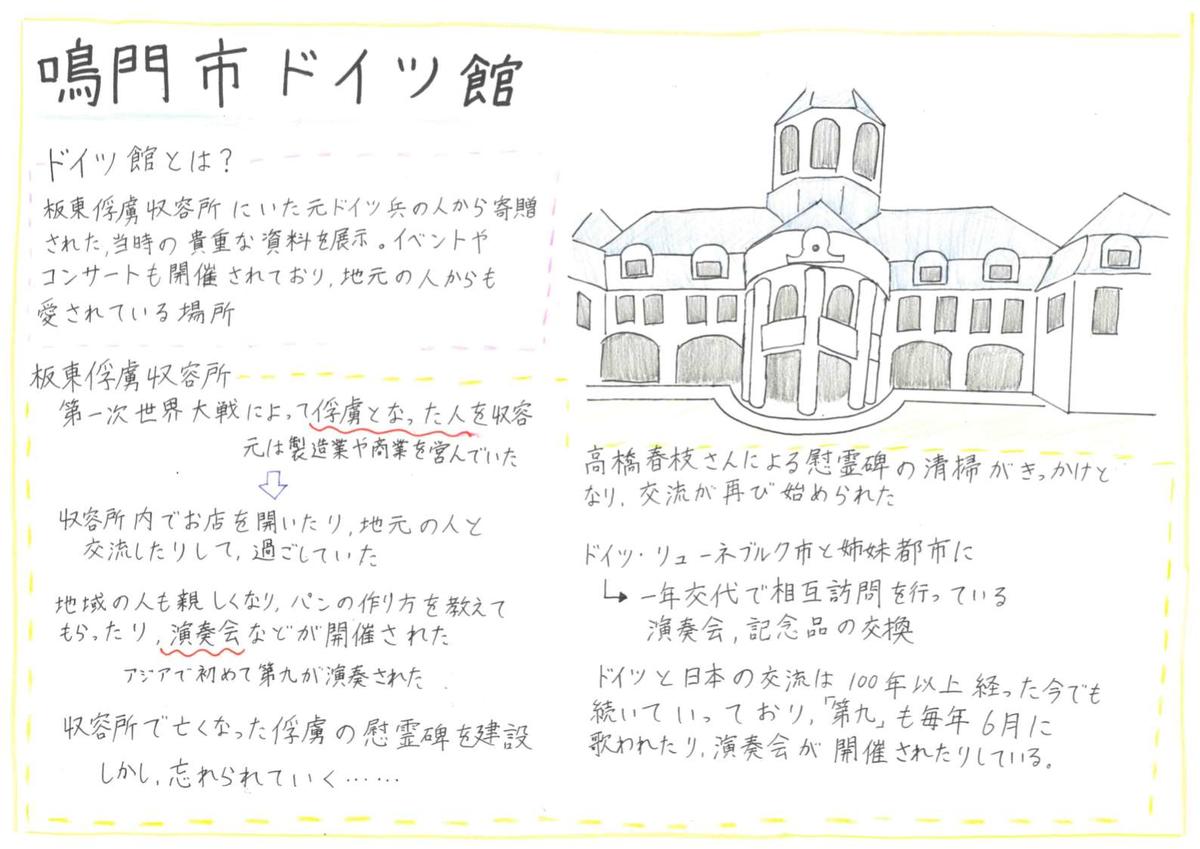 鳴門市ドイツ館
ドイツ館とは？
板東俘虜収容所にいた元ドイツ兵の人から寄贈
された,当時の貴重な資料を展示。イベントや
コンサートも開催されており,地元の人からも
愛されている場所
板東俘虜収容所
第一次世界大戦によって俘虜となった人を収容
元は製造業や商業を営んでいた
収容所内でお店を開いたり,地元の人と
交流したりして,過ごしていた
地域の人も親しくなり,パンの作り方を教えて
もらったり,演奏会などが開催された
アジアで初めて第九が演奏された
収容所で亡くなった俘虜の慰霊碑を建設
しかし,忘れられていく……
高橋春枝さんによる慰霊碑の清掃がきっかけと
なり,交流が再び始められた
ドイツ・リューネブルク市と姉妹都市に
→一年交代で相互訪問を行っている
演奏会,記念品の交換
ドイツと日本の交流は100年以上経った今でも
続いていっており,「第九」も毎年6月に
歌われたり,演奏会が開催されたりしている。